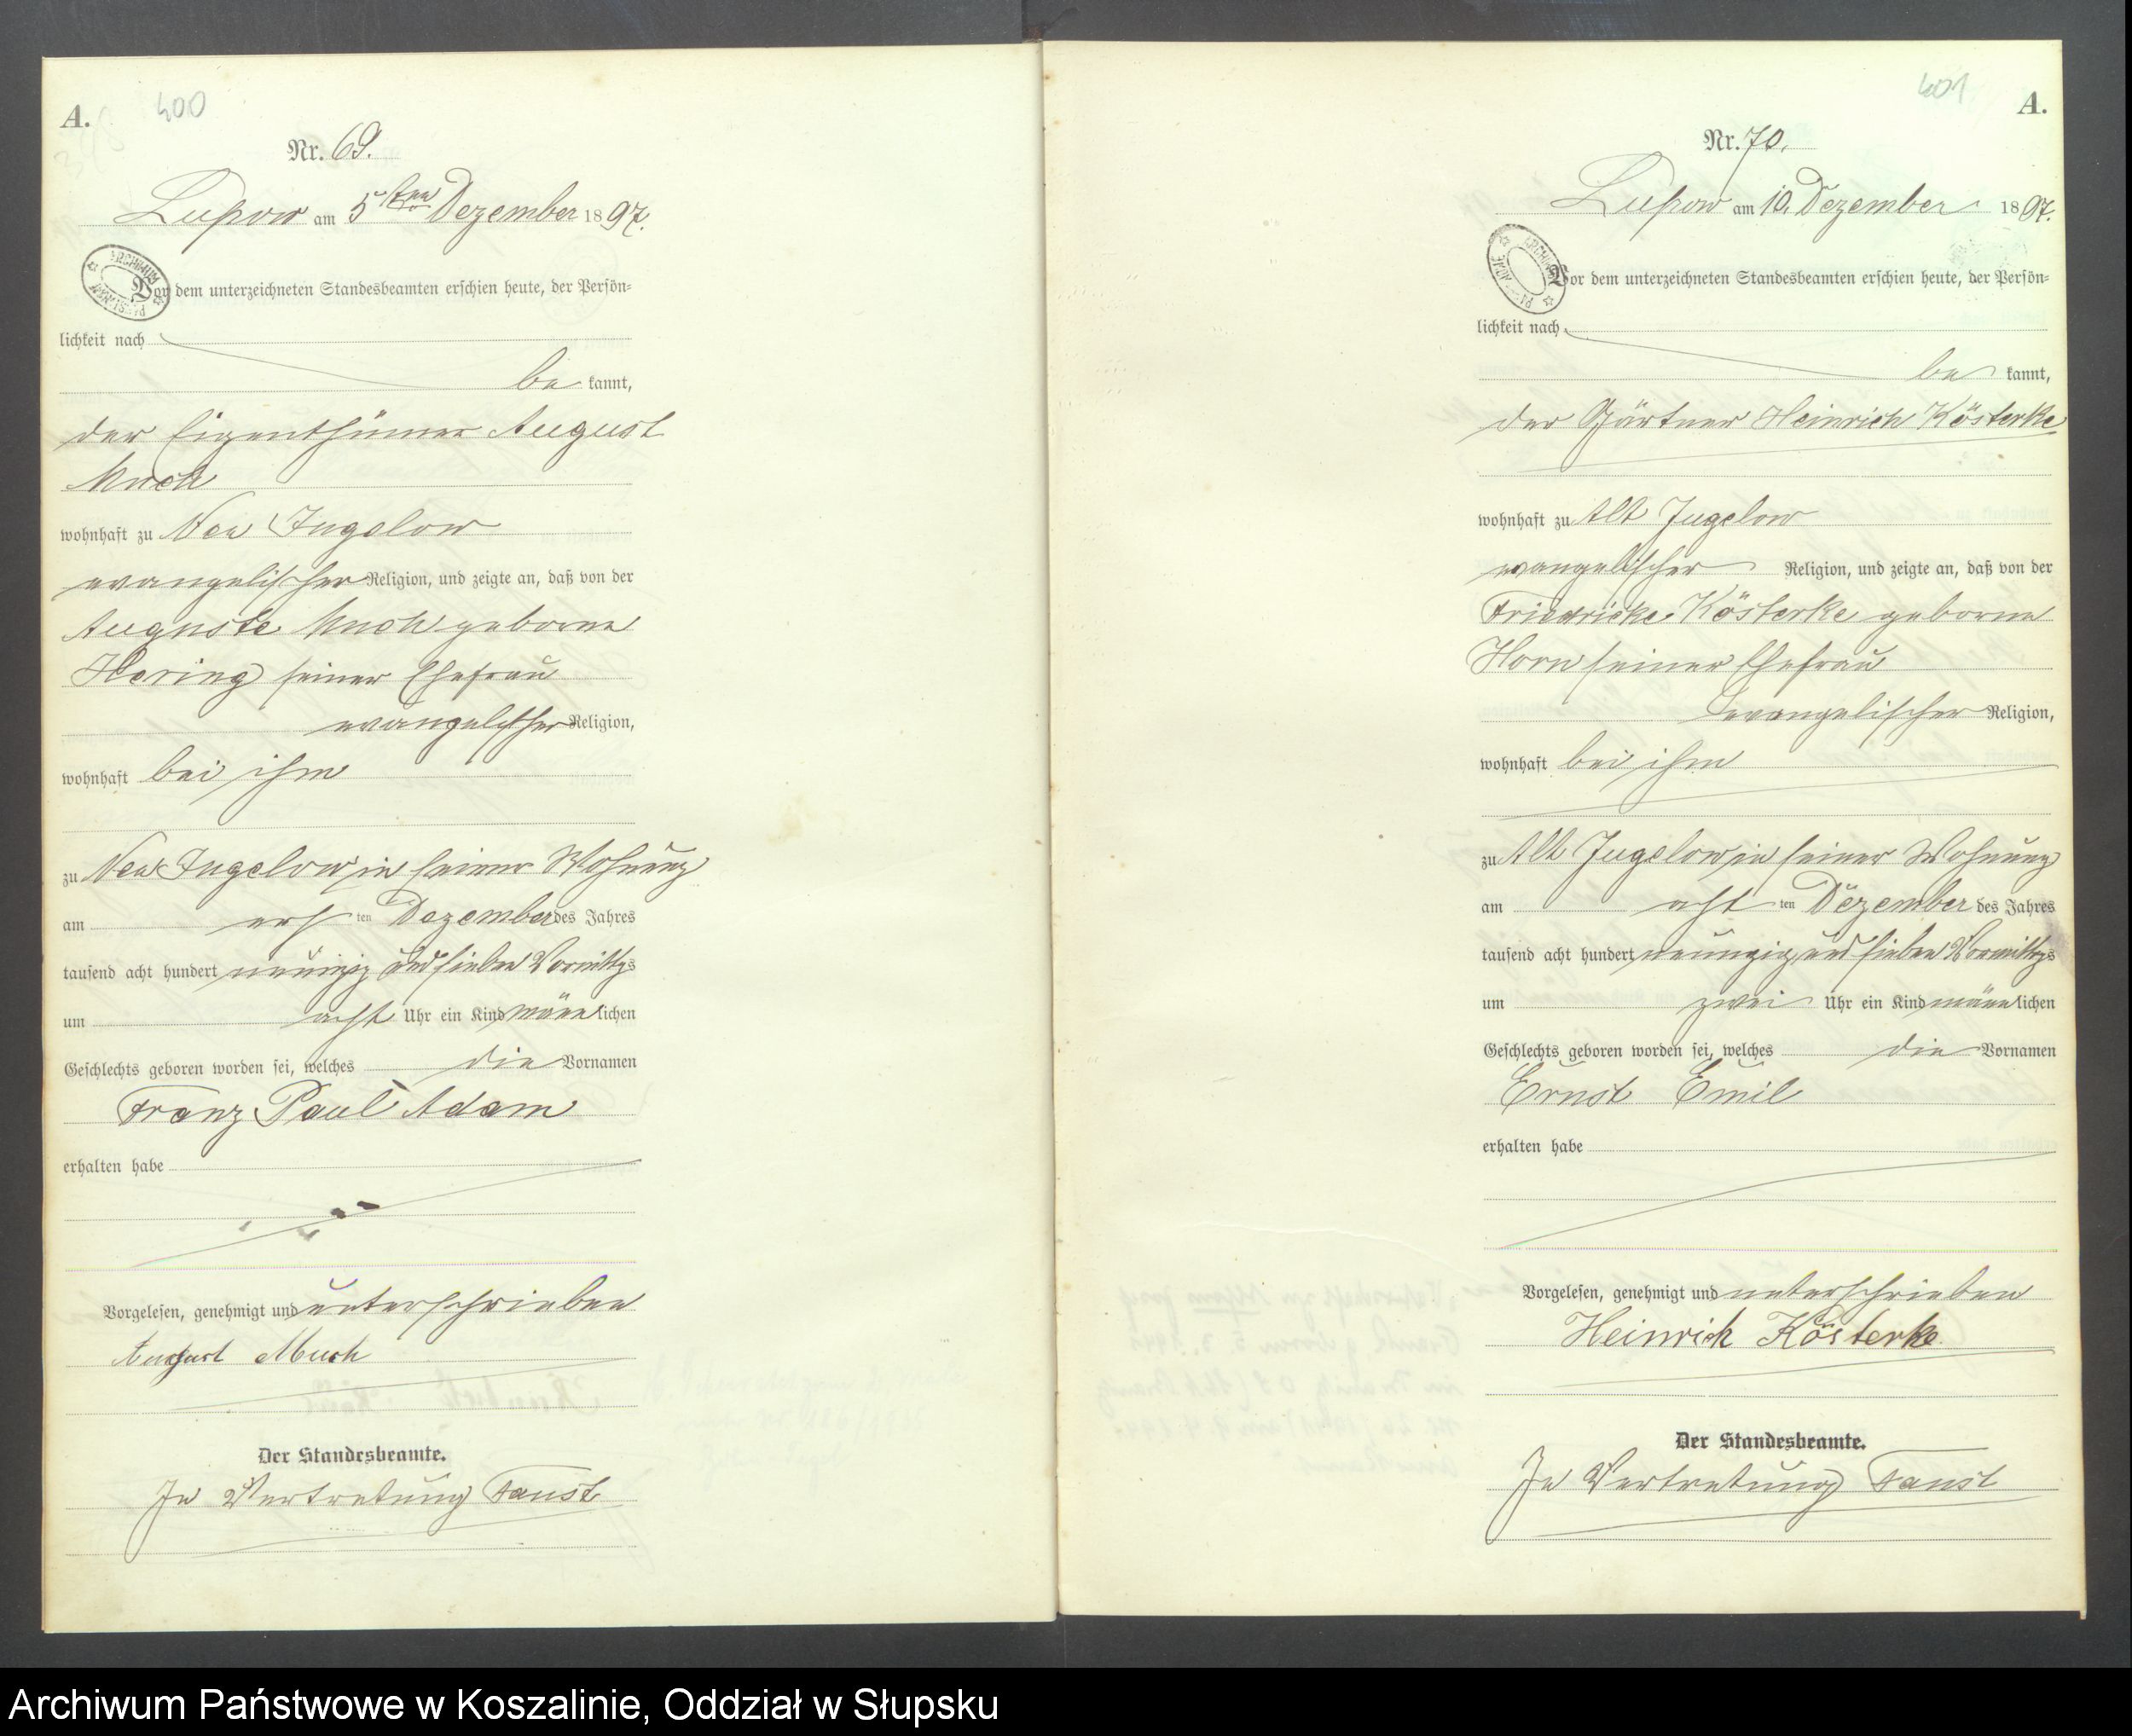 A.
400
Nr. 69.
Lupow am 5ten Dezember 1897.
Vor dem unterzeichneten Standesbeamten erschien heute, der Persön=
lichkeit nach
be kannt,
der Eigenthümer August
Much
wohnhaft zu Neu Jugelow
evangelischer Religion, und zeigte an, daß von der
Auguste Much geborne
Hering seiner Ehefrau
evangelischer Religion,
wohnhaft bei ihm
zu Neu Jugelow in seiner Wohnung
am ersten Dezember des Jahres
tausend acht hundert neunzig und sieben Vormittags
um acht Uhr ein Kind männlichen
Geschlechts geboren worden sei, welches die Vornamen
Franz Paul Adam
erhalten habe
Vorgelesen, genehmigt und unterschrieben
August Much
Der Standesbeamte.
In Vertretung Faust
401
A.
Nr. 70.
Lupow am 10. Dezember 1897.
Vor dem unterzeichneten Standesbeamten erschien heute, der Persön=
lichkeit nach
be kannt,
der Gärtner Heinrich Kösterke
wohnhaft zu Alt Jugelow
evangelischer Religion, und zeigte an, daß von der
Friedricke Kösterke geborne
Horn seiner Ehefrau
evangelischer Religion,
wohnhaft bei ihm
zu Alt Jugelow in seiner Wohnung
am achten Dezember des Jahres
tausend acht hundert neunzig und sieben Vormittags
um zwei Uhr ein Kind männlichen
Geschlechts geboren worden sei, welches die Vornamen
Ernst Emil
erhalten habe
Vorgelesen, genehmigt und unterschrieben
Heinrich Kösterke
Der Standesbeamte.
In Vertretung Faust
Archiwum Państwowe w Koszalinie, Oddział w Słupsku